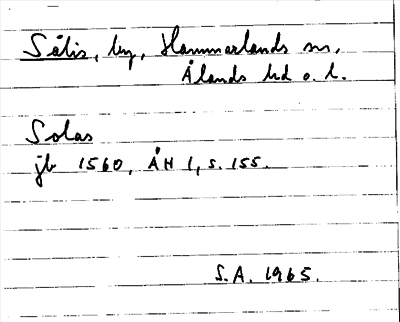 Sålis, by, Hammarlands sn,
Ålands hd o. l.
Solas
jb 1560, ÅH 1, s. 155.
S.A. 1965.